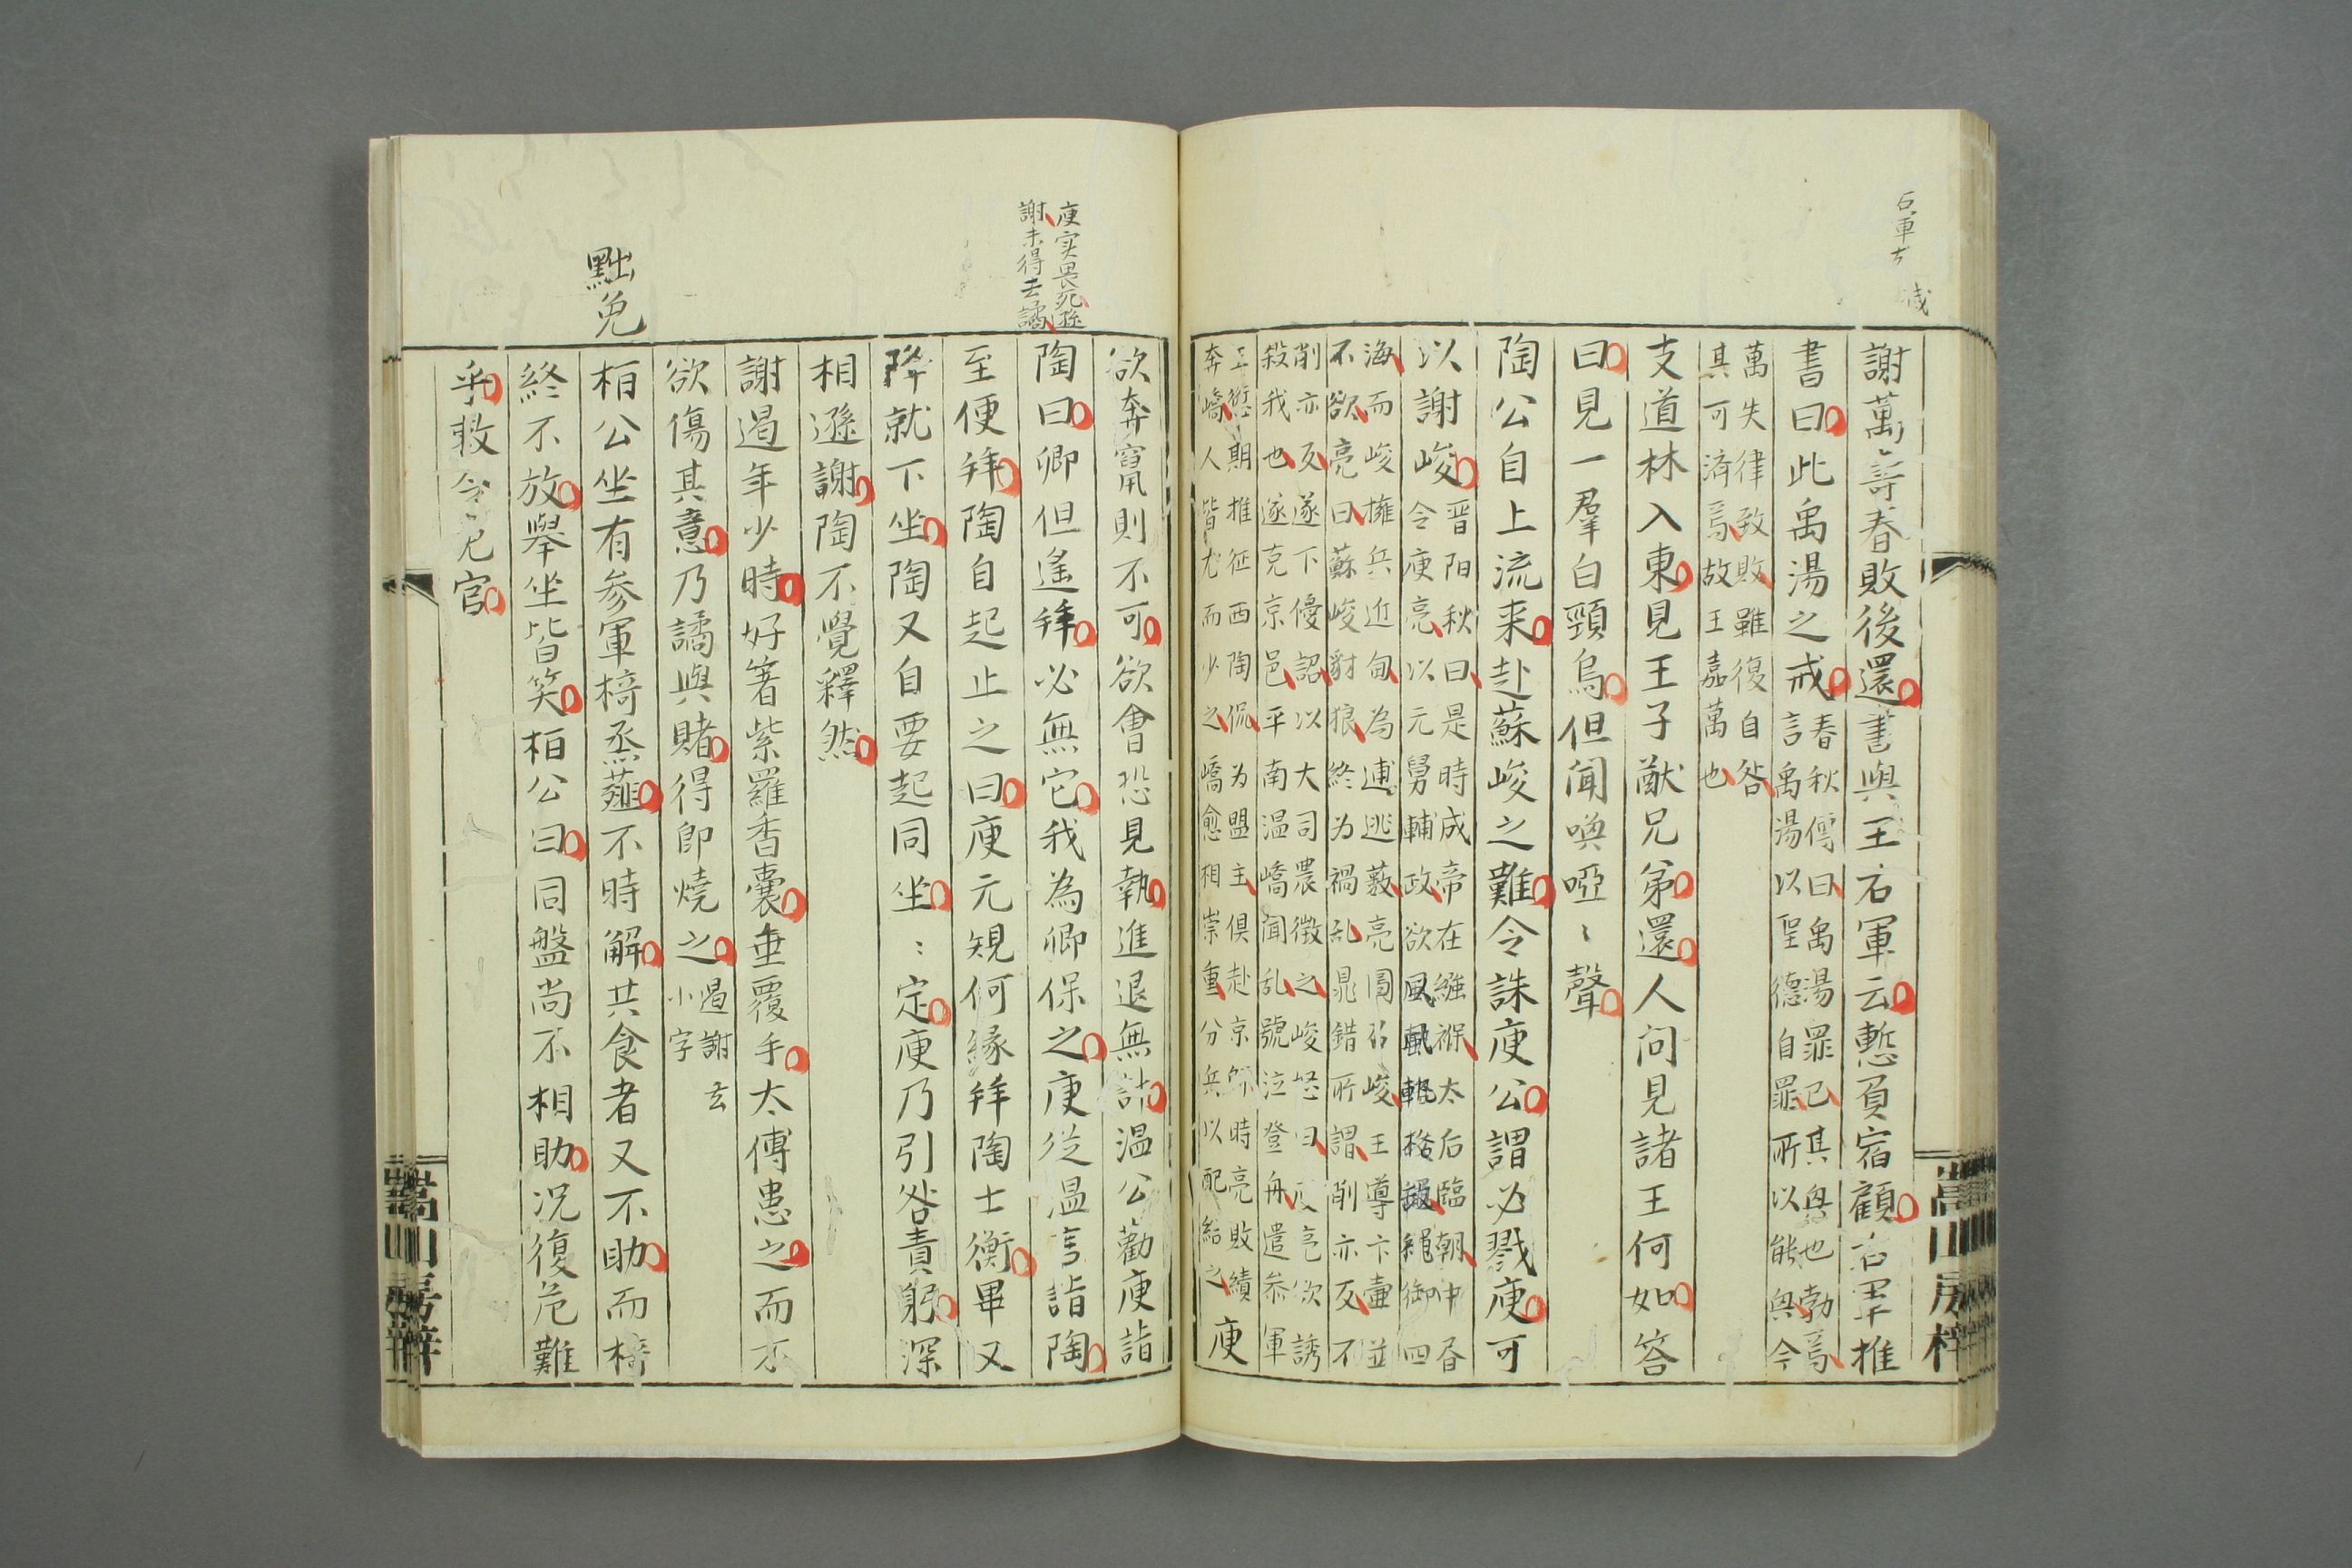 右軍
謝萬壽春敗後還書與王右軍云慙負宿顧右軍推
書曰此禹湯之戒
春秋傳曰禹湯罪己其興也勃焉
言禹湯以聖德自罪所以能興今
萬失律致敗雖復自咎
其可済焉故王嘉萬也
支道林入東見王子猷兄弟還人问見諸王何如答
曰見一羣白頸烏但闻喚啞〻聲
陶公自上流来赴蘇峻之難令誅庾公謂必戮庾可
以謝峻
晋阳秋曰是時成帝在繈褓太后臨朝中
令庾亮以元舅輔政欲風軌格繩御四
海而峻擁兵近甸為逋逃薮亮圖召峻王導卞壷並
不欲亮曰蘇峻豺狼終为禍乱晁錯所謂削亦反不
削亦反遂下優詔以大司農徵之峻怒曰庾亮欲誘
殺我也遂克京邑平南温嶠闻乱號泣登舟遣叅軍
王愆期推征西陶侃为盟主俱赴京師時亮敗績
奔嶠人皆尤而少之嶠愈相崇重分兵以配給之
庾
嵩山房梓
庾实畏死遜
謝未得去譎
欲奔竄則不可欲會恐見執進退無計温公勸庾詣
陶曰卿但遙拜必無它我為卿保之庾從温言詣陶
至便拜陶自起止之曰庾元規何緣拜陶士衡畢又
降就下坐陶又自要起同坐〻定庾乃引咎責躬深
相遜謝陶不覺釋然
謝遏年少時好著紫羅香囊垂覆手太傅患之而不
欲傷其意乃譎與賭得即燒之
遏謝玄
小字
黜免
桓公坐有參軍椅烝薤不時解共食者又不助而椅
終不放舉坐皆笑桓公曰同盤尚不相助况復危難
乎敕令免官
嵩山房梓